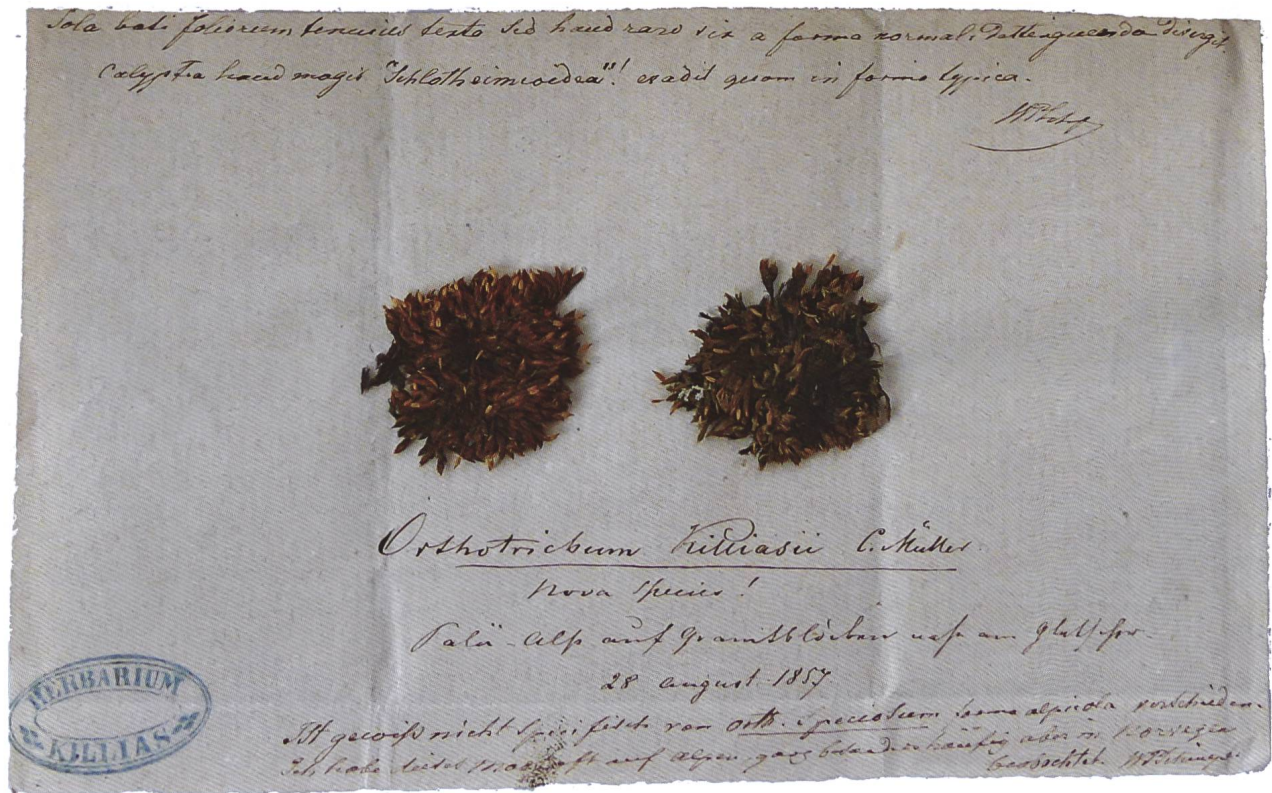 Sola basi foliorum tenuius texta sed haud raro vix a forma normali distinguenda divergit,
Calyptra haud magis "Schlotheimioidea"! evadit quam in forma typica.
WPSch
Orthotrichum Killiasii C. Müller
nova species!
Palü-Alp auf Granitblöcken nahe am Gletscher.
28 august 1857
HERBARIUM
KILLIAS
Ist gewiß nicht specifisch von Orth. Speciosum forma alpicola verschieden.
Ich habe dieses Moos oft auf Alpen, ganz besonders häufig aber in Norwegen
beobachtet. WPSchimper